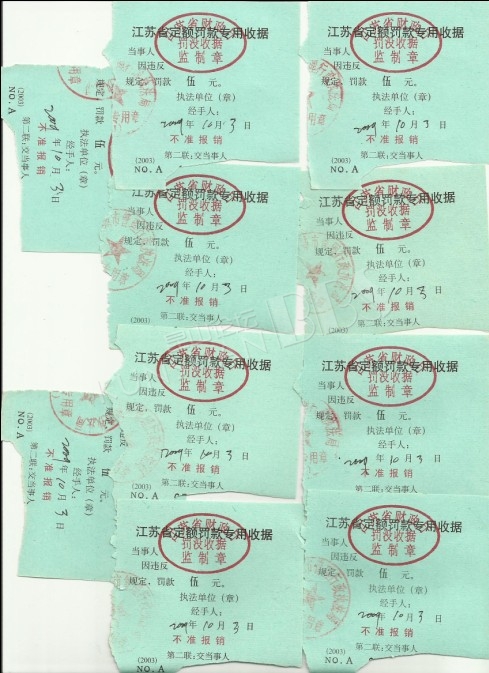 江苏省定额罚款专用收据
江苏省财政
罚没收据
监制章
当事人
因违反
规定、罚款 伍 元。
执法单位（章）
经手人：
2009年10月3日
不准报销
(2003) 第二联：交当事人
NO. A
专用章
江苏省定额罚款专用收据
江苏省财政
罚没收据
监制章
当事人
因违反
规定、罚款 伍 元。
执法单位（章）
经手人：
2009年10月3日
不准报销
(2003) 第二联：交当事人
NO. A
用章
规定、罚款 伍
执法单位（章）
经手人：
2009年10月3日
不准报销
(2003) 第二联：交当事人
NO. A
用章
江苏省定额罚款专用收据
江苏省财政
罚没收据
监制章
当事人
因违反
规定、罚款 伍 元。
执法单位（章）
经手人：
2009年10月3日
不准报销
(2003) 第二联：交当事人
江苏省定额罚款专用收据
江苏省财政
罚没收据
监制章
当事人
因违反
规定、罚款 伍 元。
执法单位（章）
经手人：
2009年10月3日
不准报销
(2003) 第二联：交当事人
江苏省定额罚款专用收据
江苏省财政
罚没收据
监制章
当事人
因违反
规定、罚款 伍 元。
执法单位（章）
经手人：
2009年10月3日
不准报销
(2003) 第二联：交当事人
NO. A
江苏省定额罚款专用收据
江苏省财政
罚没收据
监制章
当事人
因违反
规定、罚款 伍 元。
执法单位（章）
经手人：
2009年10月3日
不准报销
(2003) 第二联：交当事人
NO. A
用章
规定、罚款 伍
执法单位（章）
经手人：
2009年10月3日
不准报销
(2003) 第二联：交当事人
NO. A
用章
江苏省定额罚款专用收据
江苏省财政
罚没收据
监制章
当事人
因违反
规定、罚款 伍 元。
执法单位（章）
经手人：
2009年10月3日
不准报销
(2003) 第二联：交当事人
NO. A
江苏省定额罚款专用收据
江苏省财政
罚没收据
监制章
当事人
因违反
规定、罚款 伍 元。
执法单位（章）
经手人：
2009年10月3日
不准报销
(2003) 第二联：交当事人
NO. A